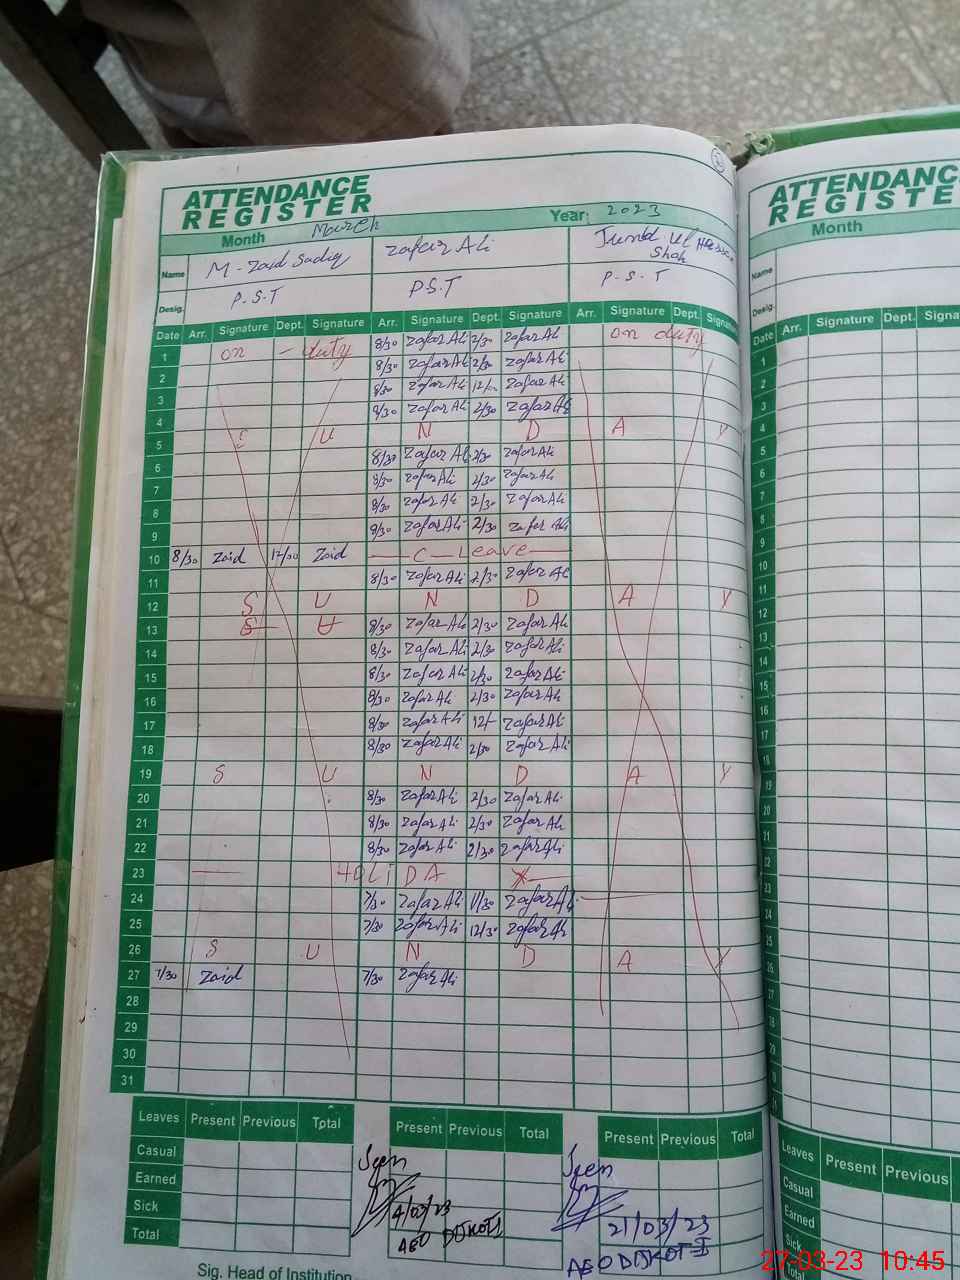 ATTENDANCE
REGISTER
Month March Year: 2023
Name M-Zaid Sadiq Zafar Ali Shah
Desig. P.S.T P.S.T P.S.T
Date Arr. Signature Dept. Signature Arr. Signature Dept. Signature Arr. Signature Dept. Signature
1 on - duty 8/30 Zafar Ali 2/30 Zafar Ali on duty
2 8/30 Zafar Ali 2/30 Zafar Ali
3 8/30 Zafar Ali 12/- Zafar Ali
4 8/30 Zafar Ali 2/30 Zafar Ali
5 S U N D A Y
6 8/30 Zafar Ali 2/30 Zafar Ali
7 8/30 Zafar Ali 2/30 Zafar Ali
8 8/30 Zafar Ali 2/30 Zafar Ali
9 8/30 Zafar Ali 2/30 Zafar Ali
10 8/30 Zaid 12/30 Zaid C-Leave
11 8/30 Zafar Ali 2/30 Zafar Ali
12 S U N D A Y
13 S U 8/30 Zafar Ali 2/30 Zafar Ali
14 8/30 Zafar Ali 2/30 Zafar Ali
15 8/30 Zafar Ali 2/30 Zafar Ali
16 8/30 Zafar Ali 2/30 Zafar Ali
17 8/30 Zafar Ali 12/- Zafar Ali
18 8/30 Zafar Ali 2/30 Zafar Ali
19 S U N D A Y
20 8/30 Zafar Ali 2/30 Zafar Ali
21 8/30 Zafar Ali 2/30 Zafar Ali
22 8/30 Zafar Ali 2/30 Zafar Ali
23 HOLIDAY
24 7/30 Zafar Ali 11/30 Zafar Ali
25 7/30 Zafar Ali 12/30 Zafar Ali
26 S U N D A Y
27 7/30 Zaid 7/30 Zafar Ali
28
29
30
31
Leaves Present Previous Total Present Previous Total Present Previous Total
Casual
Earned
Sick
Total
Seen
4/03/23
AEO DIJKOT I
Seen
21/03/23
AEO DIJKOT I
Sig. Head of Institution
ATTENDANC
REGISTE
Month
Name
Desig.
Date Arr. Signature Dept. Signa
1
2
3
4
5
6
7
8
9
10
11
12
13
14
15
16
17
18
19
20
21
22
23
24
25
26
27
28
Leaves Present Previous
Casual
Earned
Sick
Total
27-03-23 10:45